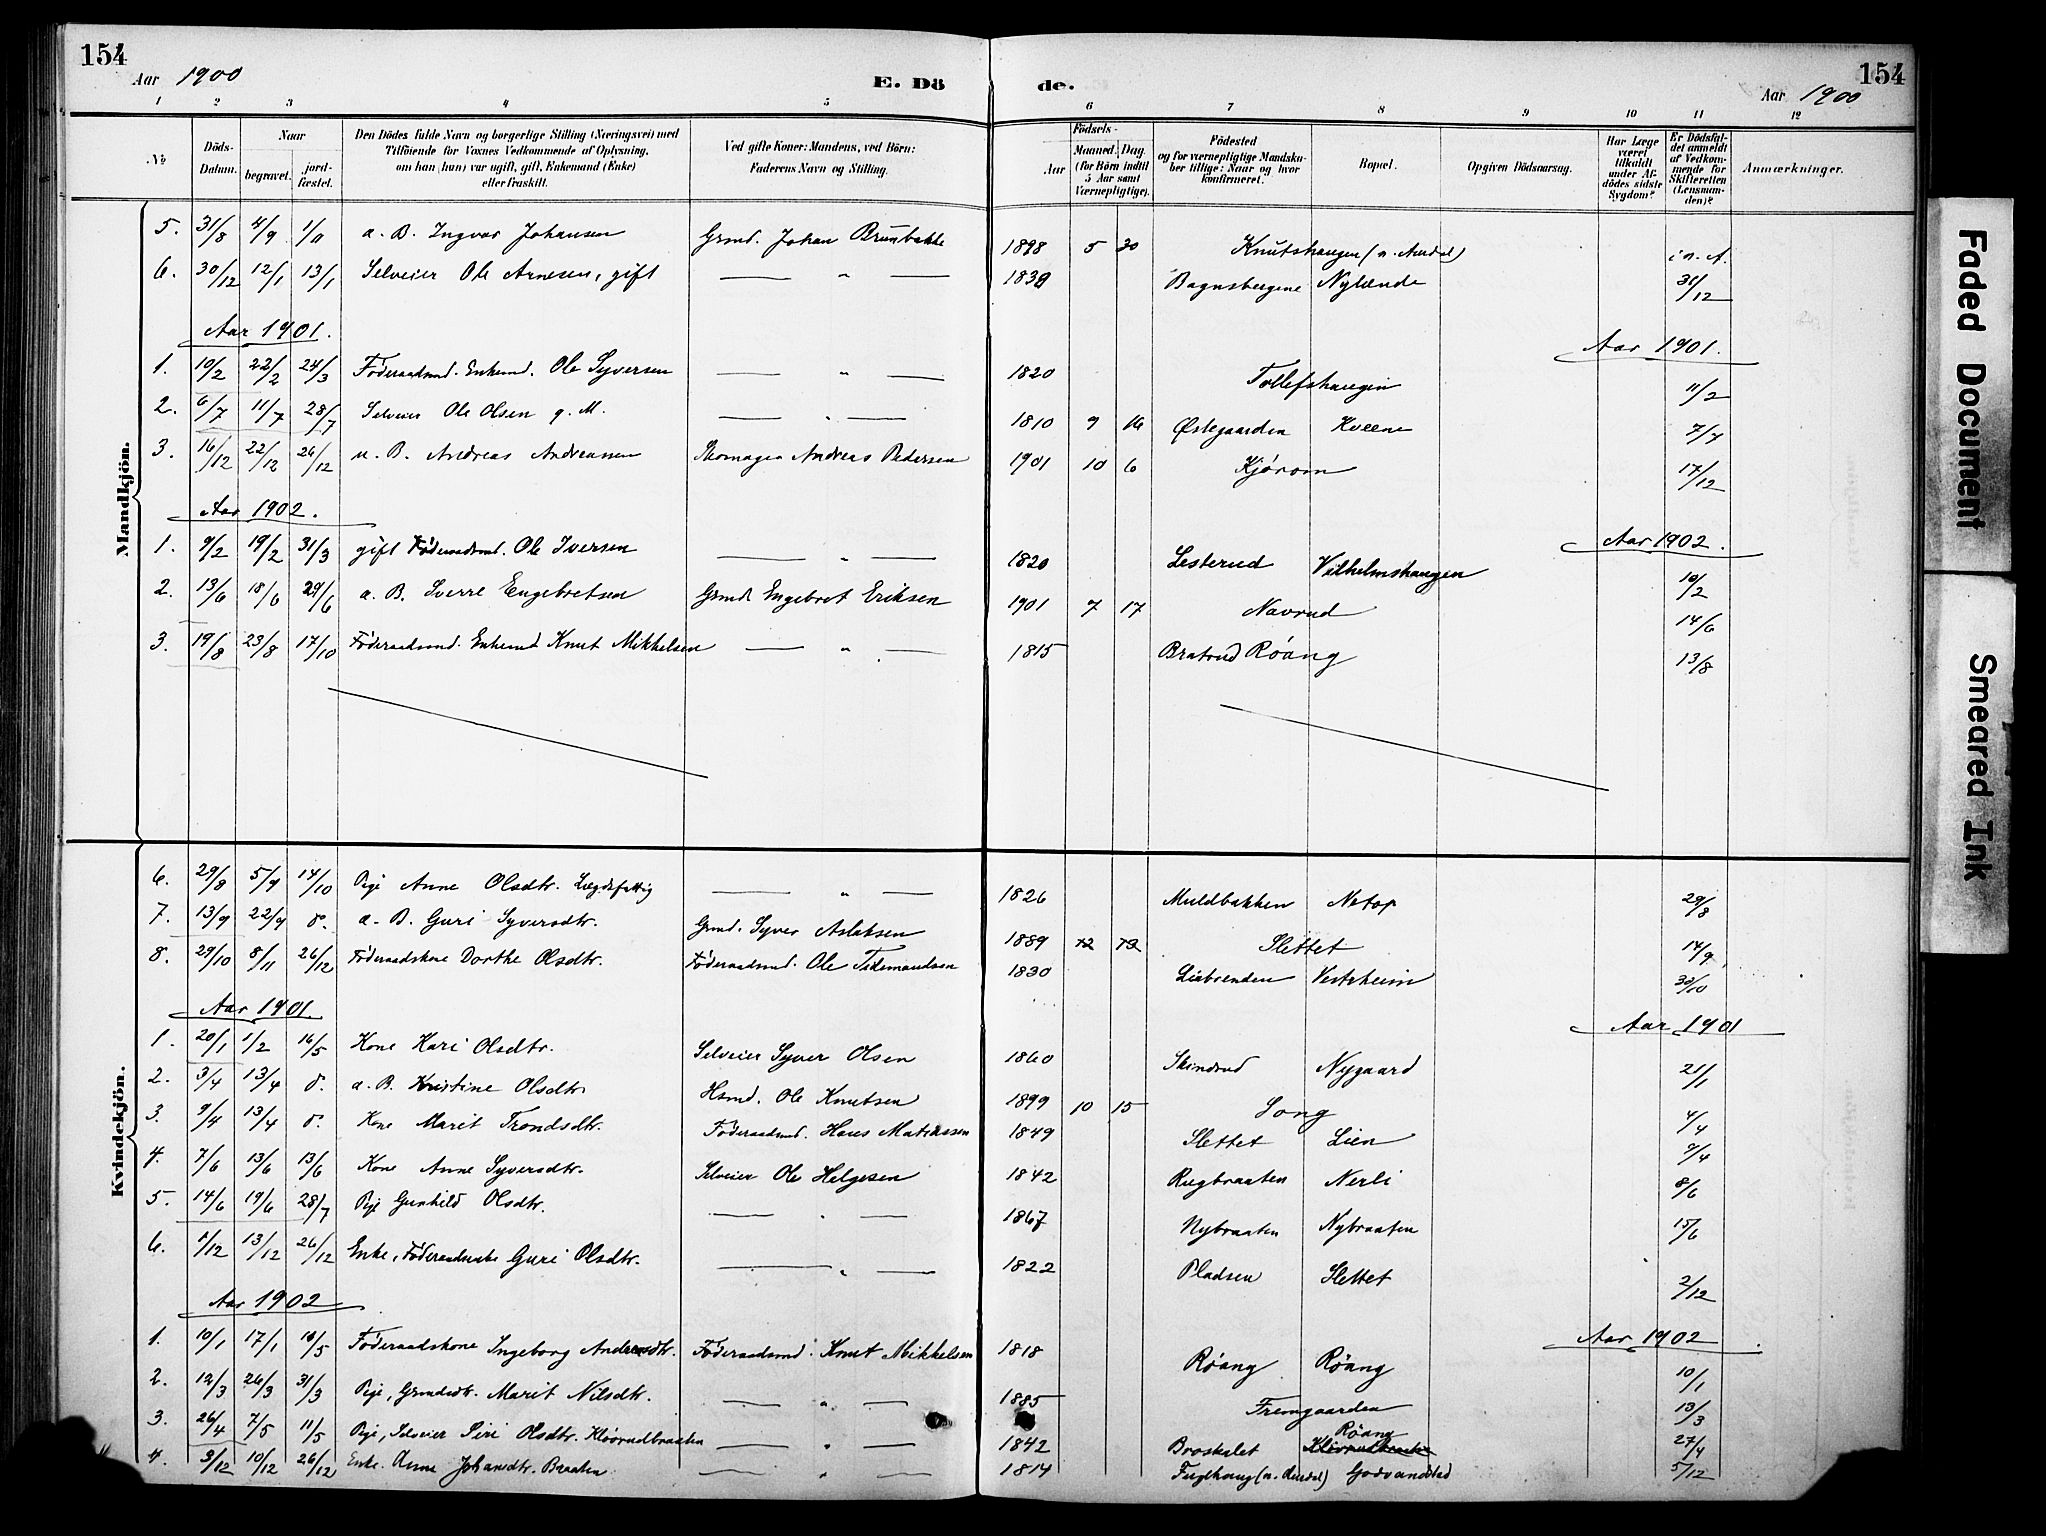 154
Aar 1900
E. Dö
de.
Aar 1900
154
1 2 3 4 5 6 7 8 9 10 11 12
№
Döds-
Datum.
Naar
begravet.
jord-
fæstet.
Den Dödes fulde Navn og borgerlige Stilling (Næringsvei) med
Tilföiende for Voxnes Vedkommende af Oplysning,
om han (hun) var ugift, gift, Enkemand (Enke)
eller fraskilt.
Ved gifte Koner: Mandens, ved Börn:
Faderens Navn og Stilling.
Födsels-
Aar
Maaned. Dag.
(for Börn indtil
5 Aar samt
Værnepligtige).
Födested
og for værnepligtige Mandska-
ber tillige: Naar og hvor
konfirmeret.
Bopæl.
Opgiven Dödsaarsag.
Har Læge
været
tilkaldt
under Af-
dödes sidste
Sygdom?
Er Dödsfal-
det anmeldt
af Vedkom-
mende for
Skifteretten
(Lensman-
den)?
Anmærkninger.
Mandkjön.
5. 31/8 4/9 1/11 a. B. Ingvar Johansen Grmd. Johan Brunbakke 1898 5 30 Knutshaugen (n. Aurdal) i n. A.
6. 30/12 12/1 13/1 Selveier Ole Arnesen, gift — " — 1830 Bagnsbergene Nylænde 31/12
Aar 1901. Aar 1901.
1. 10/2 22/2 24/3 Föderaadsmd. Enkemd. Ole Syversen — " — 1820 Tollefshaugen 11/2
2. 6/7 11/7 28/7 Selveier Ole Olsen g. M. — " — 1810 9 16 Østegaarden Kveene 7/7
3. 16/12 22/12 26/12 u. B. Andreas Andreassen Skomager Andreas Pedersen 1901 10 6 Kjørom 17/12
Aar 1902. Aar 1902.
1. 9/2 19/2 31/3 gift Föderaadsmd. Ole Iversen — " — 1820 Lesterud Vilhelmshaugen 10/2
2. 13/6 18/6 29/6 a. B. Sverre Engebretsen Grmd. Engebret Eriksen 1901 7 17 Navrud 14/6
3. 19/8 23/8 17/10 Föderaadsmd. Enkemd Knut Mikkelsen — " — 1815 Bratrud Røang 13/8
Kvindekjön.
6. 29/8 5/9 14/10 Pige Anne Olsdtr. Lægdsfattig — " — 1826 Muldbakken Netop 29/8
7. 13/9 22/9 d. a. B. Guri Syversdtr. Grmd. Syver Aslaksen 1889 12 12 Slettet 14/9
8. 29/10 8/11 26/12 Föderaadskone Dorthe Olsdtr. Föderaadsmd. Ole Tidemandsen 1830 Liabrenden Vestrheim 30/10
Aar 1901. Aar 1901
1. 20/1 1/2 16/5 Kone Kari Olsdtr. Selveier Syver Olsen 1860 Skindrud Nygaard 21/1
2. 3/4 13/4 d. a. B. Kristine Olsdtr Hsmd. Ole Knutsen 1899 10 15 Song 4/4
3. 9/4 13/4 d. Kone Marit Trondsdtr. Föderaadsmd. Hans Matiassen 1849 Slettet Lien 9/4
4. 7/6 13/6 13/6 Kone Anne Syversdtr. Selveier Ole Helgesen 1842 Rugbraaten Nerli 8/6
5. 14/6 19/6 28/7 Pige Gunhild Olsdtr. — " — 1867 Nybraaten Nybraaten 15/6
6. 1/12 13/12 26/12 Enke, Föderaadsenke Guri Olsdtr. — " — 1822 Pladsen Slettet 2/12
Aar 1902 Aar 1902
1. 10/1 17/1 16/5 Föderaadskone Ingeborg Andersdtr. Föderaadsmd. Knut Mikkelsen 1818 Røang Røang 10/1
2. 12/3 26/3 31/3 Pige, Grmdsdtr. Marit Nilsdtr. — " — 1885 Fremgaarden 13/3
3. 26/4 7/5 11/5 Pige, Selveier Siri Olsdtr. Kløvrudbraaten — " — 1842 Braskalet Røang 27/4
4. 3/12 10/12 26/12 Enke. Anne Johansdtr. Braaten — " — 1814 Fuglhaug (n. Aurdal) Godvandstad 5/12
Faded Document
Smeared Ink